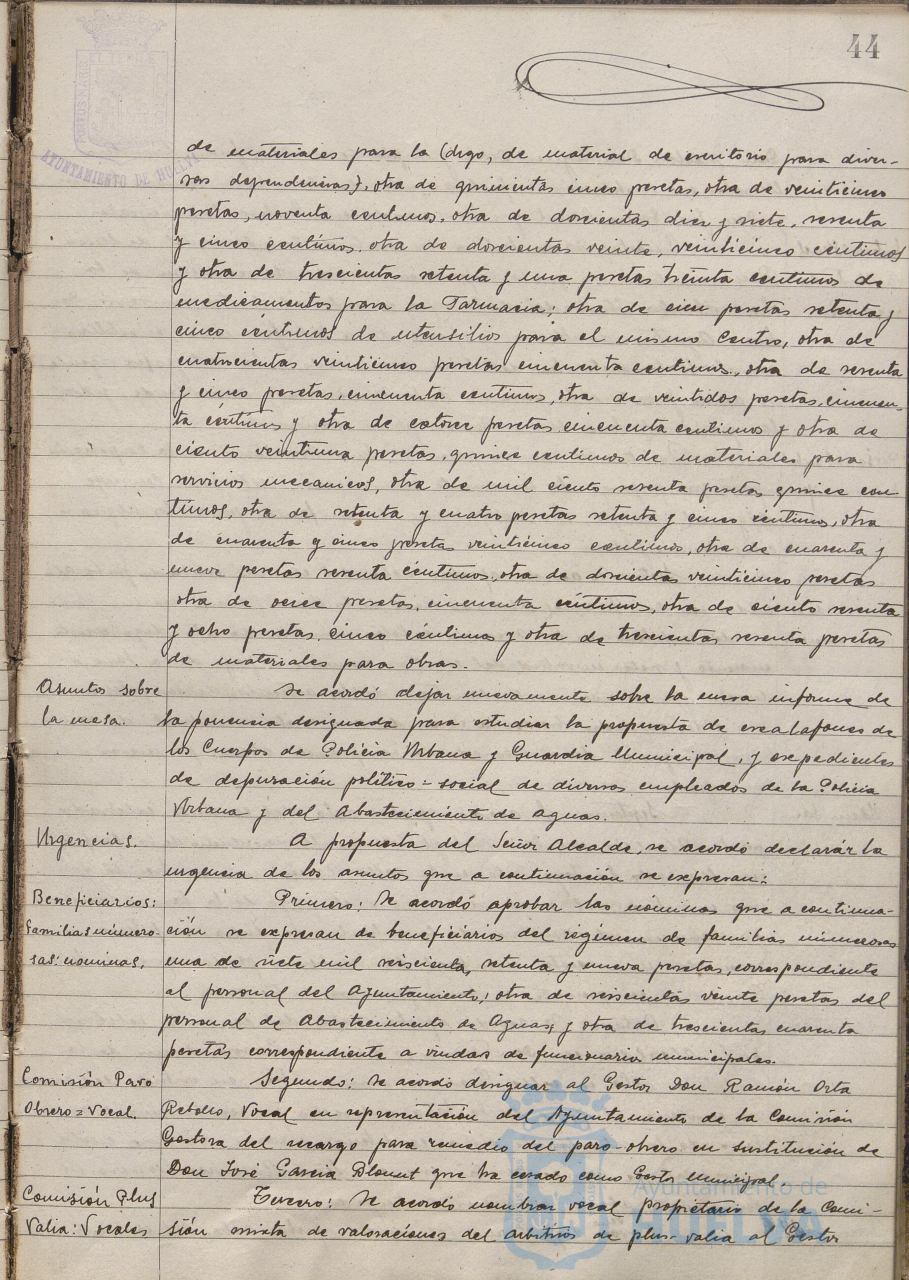 44
AYUNTAMIENTO DE HUELVA
de materiales para la (digo, de material de escritorio para diver-
sas dependencias), otra de quinientas cinco pesetas, otra de veinticinco
pesetas, noventa centimos, otra de doscientas diez y siete, sesenta
y cinco centimos, otra de doscientas veinte, veinticinco centimos
y otra de trescientas setenta y una pesetas treinta centimos de
medicamentos para la Farmacia; otra de cien pesetas setenta y
cinco céntimos de utensilios para el mismo Centro, otra de
cuatrocientas veinticinco pesetas cincuenta centimos, otra de sesenta
y cinco pesetas, cincuenta centimos, otra de veintidos pesetas, cincuen-
ta céntimos y otra de catorce pesetas cincuenta centimos y otra de
ciento veintiuna pesetas, quince centimos de materiales para
servicios mecanicos, otra de mil ciento sesenta pesetas quince cen
timos, otra de setenta y cuatro pesetas setenta y cinco céntimos, otra
de cuarenta y cinco pesetas veinticinco centimos, otra de cuarenta y
nueve pesetas sesenta céntimos, otra de doscientas veinticinco pesetas
otra de once pesetas, cincuenta céntimos, otra de ciento sesenta
y ocho pesetas, cinco céntimos y otra de trescientas sesenta pesetas
de materiales para obras.
Asuntos sobre
la mesa.
Se acordó dejar nuevamente sobre la mesa informe de
la ponencia designada para estudiar la propuesta de escalafones de
los Cuerpos de Policia Urbana y Guardia Municipal, y expedientes
de depuración politico=social de diversos empleados de la Policia
Urbana y del Abastecimiento de Aguas.
Urgencias.
A propuesta del Señor Alcalde, se acordó declarár la
urgencia de los asuntos que a continuación se expresan:
Beneficiarios:
familias numero-
sas: nominas.
Primero: Se acordó aprobar las nóminas que a continua-
ción se expresan de beneficiarios del régimen de familias numerosas
una de siete mil seiscienta, setenta y nueve pesetas, correspondiente
al personal del Ayuntamiento; otra de seiscientas veinte pesetas del
personal de Abastecimiento de Aguas, y otra de trescientas cuarenta
pesetas correspondiente a viudas de funcionarios municipales.
Comisión Paro
Obrero = Vocal
Segundo: Se acordó designar al Gestor Don Ramón Orta
Rebollo, Vocal en representación del Ayuntamiento de la Comisión
Gestora del recargo para remedio del paro-obrero en sustitución de
Don José Garcia Blount que ha cesado como Gestor Municipal.
Comisión Plus
Valia: Vocales
Tercero: Se acordó nombrar vocal propietario de la Comi-
sión mixta de valoraciones del arbitrios de plus-valia al Gestor
Ayuntamiento de
HUELVA